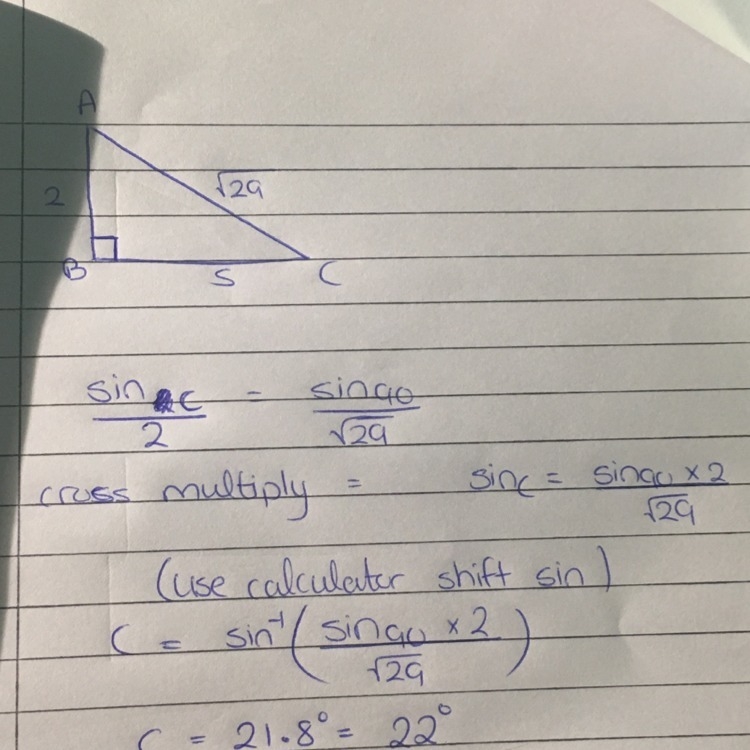 A
2 √29
B 5 C
sin C / 2 = sin90 / √29
cross multiply = sinc = sin90 × 2 / √29
(use calculator shift sin)
C = sin⁻¹ ( sin90 × 2 / √29 )
C = 21.8° = 22°